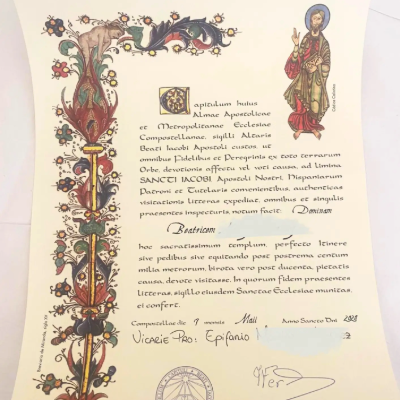 Capitulum huius
Almae Apostolicae
et Metropolitanae Ecclesiae
Compostellanae, sigilli Altaris
Beati Iacobi Apostoli custos, ut
omnibus Fidelibus et Peregrinis ex toto terrarum
Orbe, devotionis affectu vel voti causa, ad limina
SANCTI IACOBI Apostoli Nostri, Hispaniarum
Patroni et Tutelaris convenientibus, authenticas
visitationis litteras expediat, omnibus et singulis
praesentes inspecturis, notum facit: Dominam
Beatricem
hoc sacratissimum templum, perfecto Itinere
sive pedibus sive equitando post postrema centum
milia metrorum, birota vero post ducenta, pietatis
causa, devote visitasse. In quorum fidem praesentes
litteras, sigillo eiusdem Sanctae Ecclesiae munitas,
ei confert.
Compostellae die 7 mensis Maii Anno Sancto Dni
Vicarie Pro: Epifanio